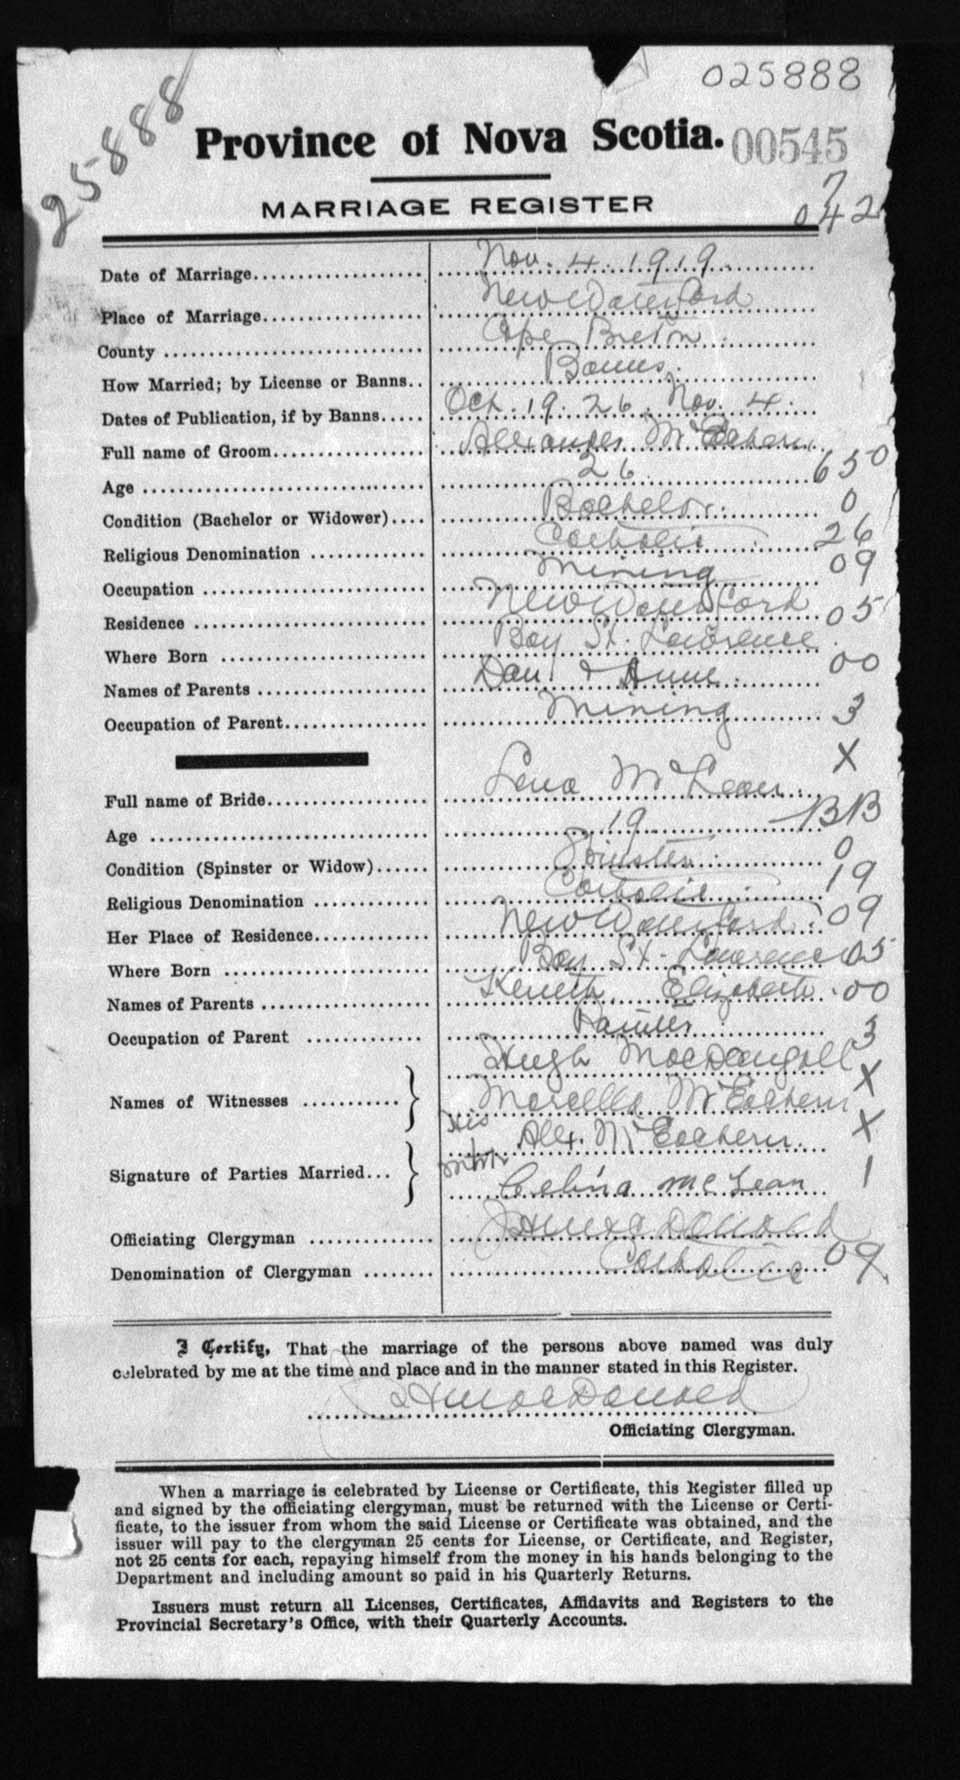 025888
25888
Province of Nova Scotia. 00545
7
MARRIAGE REGISTER
042
Date of Marriage.................... Nov. 4. 1919.
Place of Marriage.................... New Waterford
County .................... Cape Breton
How Married; by License or Banns.. Banns.
Dates of Publication, if by Banns..... Oct. 19. 26. Nov. 4.
Full name of Groom.................... Alexander McEachern
Age .................... 26. 650
Condition (Bachelor or Widower).... Bachelor. 0
Religious Denomination ............ Catholic 26
Occupation .................... Mining 09
Residence .................... New Waterford 05
Where Born .................... Bay St. Lawrence
Names of Parents .................... Dan. & Anne. 00
Occupation of Parent.................... Mining 3
X
Full name of Bride.................... Lena McLean.
Age .................... 19 BB
Condition (Spinster or Widow)...... Spinster. 0
Religious Denomination ............ Catholic 19
Her Place of Residence............ New Waterford. 09
Where Born .................... Bay St. Lawrence 05
Names of Parents .................... Kenneth, Elizabeth. 00
Occupation of Parent ............ 3
Names of Witnesses ............ Hugh MacDougall X
Marcella McEachern
Signature of Parties Married... His Alex. McEachern. X
mark
Celina McLean 1
Officiating Clergyman ............
Denomination of Clergyman ........ Catholic 09
I Certify, That the marriage of the persons above named was duly
celebrated by me at the time and place and in the manner stated in this Register.
MacDonald
Officiating Clergyman.
When a marriage is celebrated by License or Certificate, this Register filled up
and signed by the officiating clergyman, must be returned with the License or Certi-
ficate, to the issuer from whom the said License or Certificate was obtained, and the
issuer will pay to the clergyman 25 cents for License, or Certificate, and Register,
not 25 cents for each, repaying himself from the money in his hands belonging to the
Department and including amount so paid in his Quarterly Returns.
Issuers must return all Licenses, Certificates, Affidavits and Registers to the
Provincial Secretary's Office, with their Quarterly Accounts.